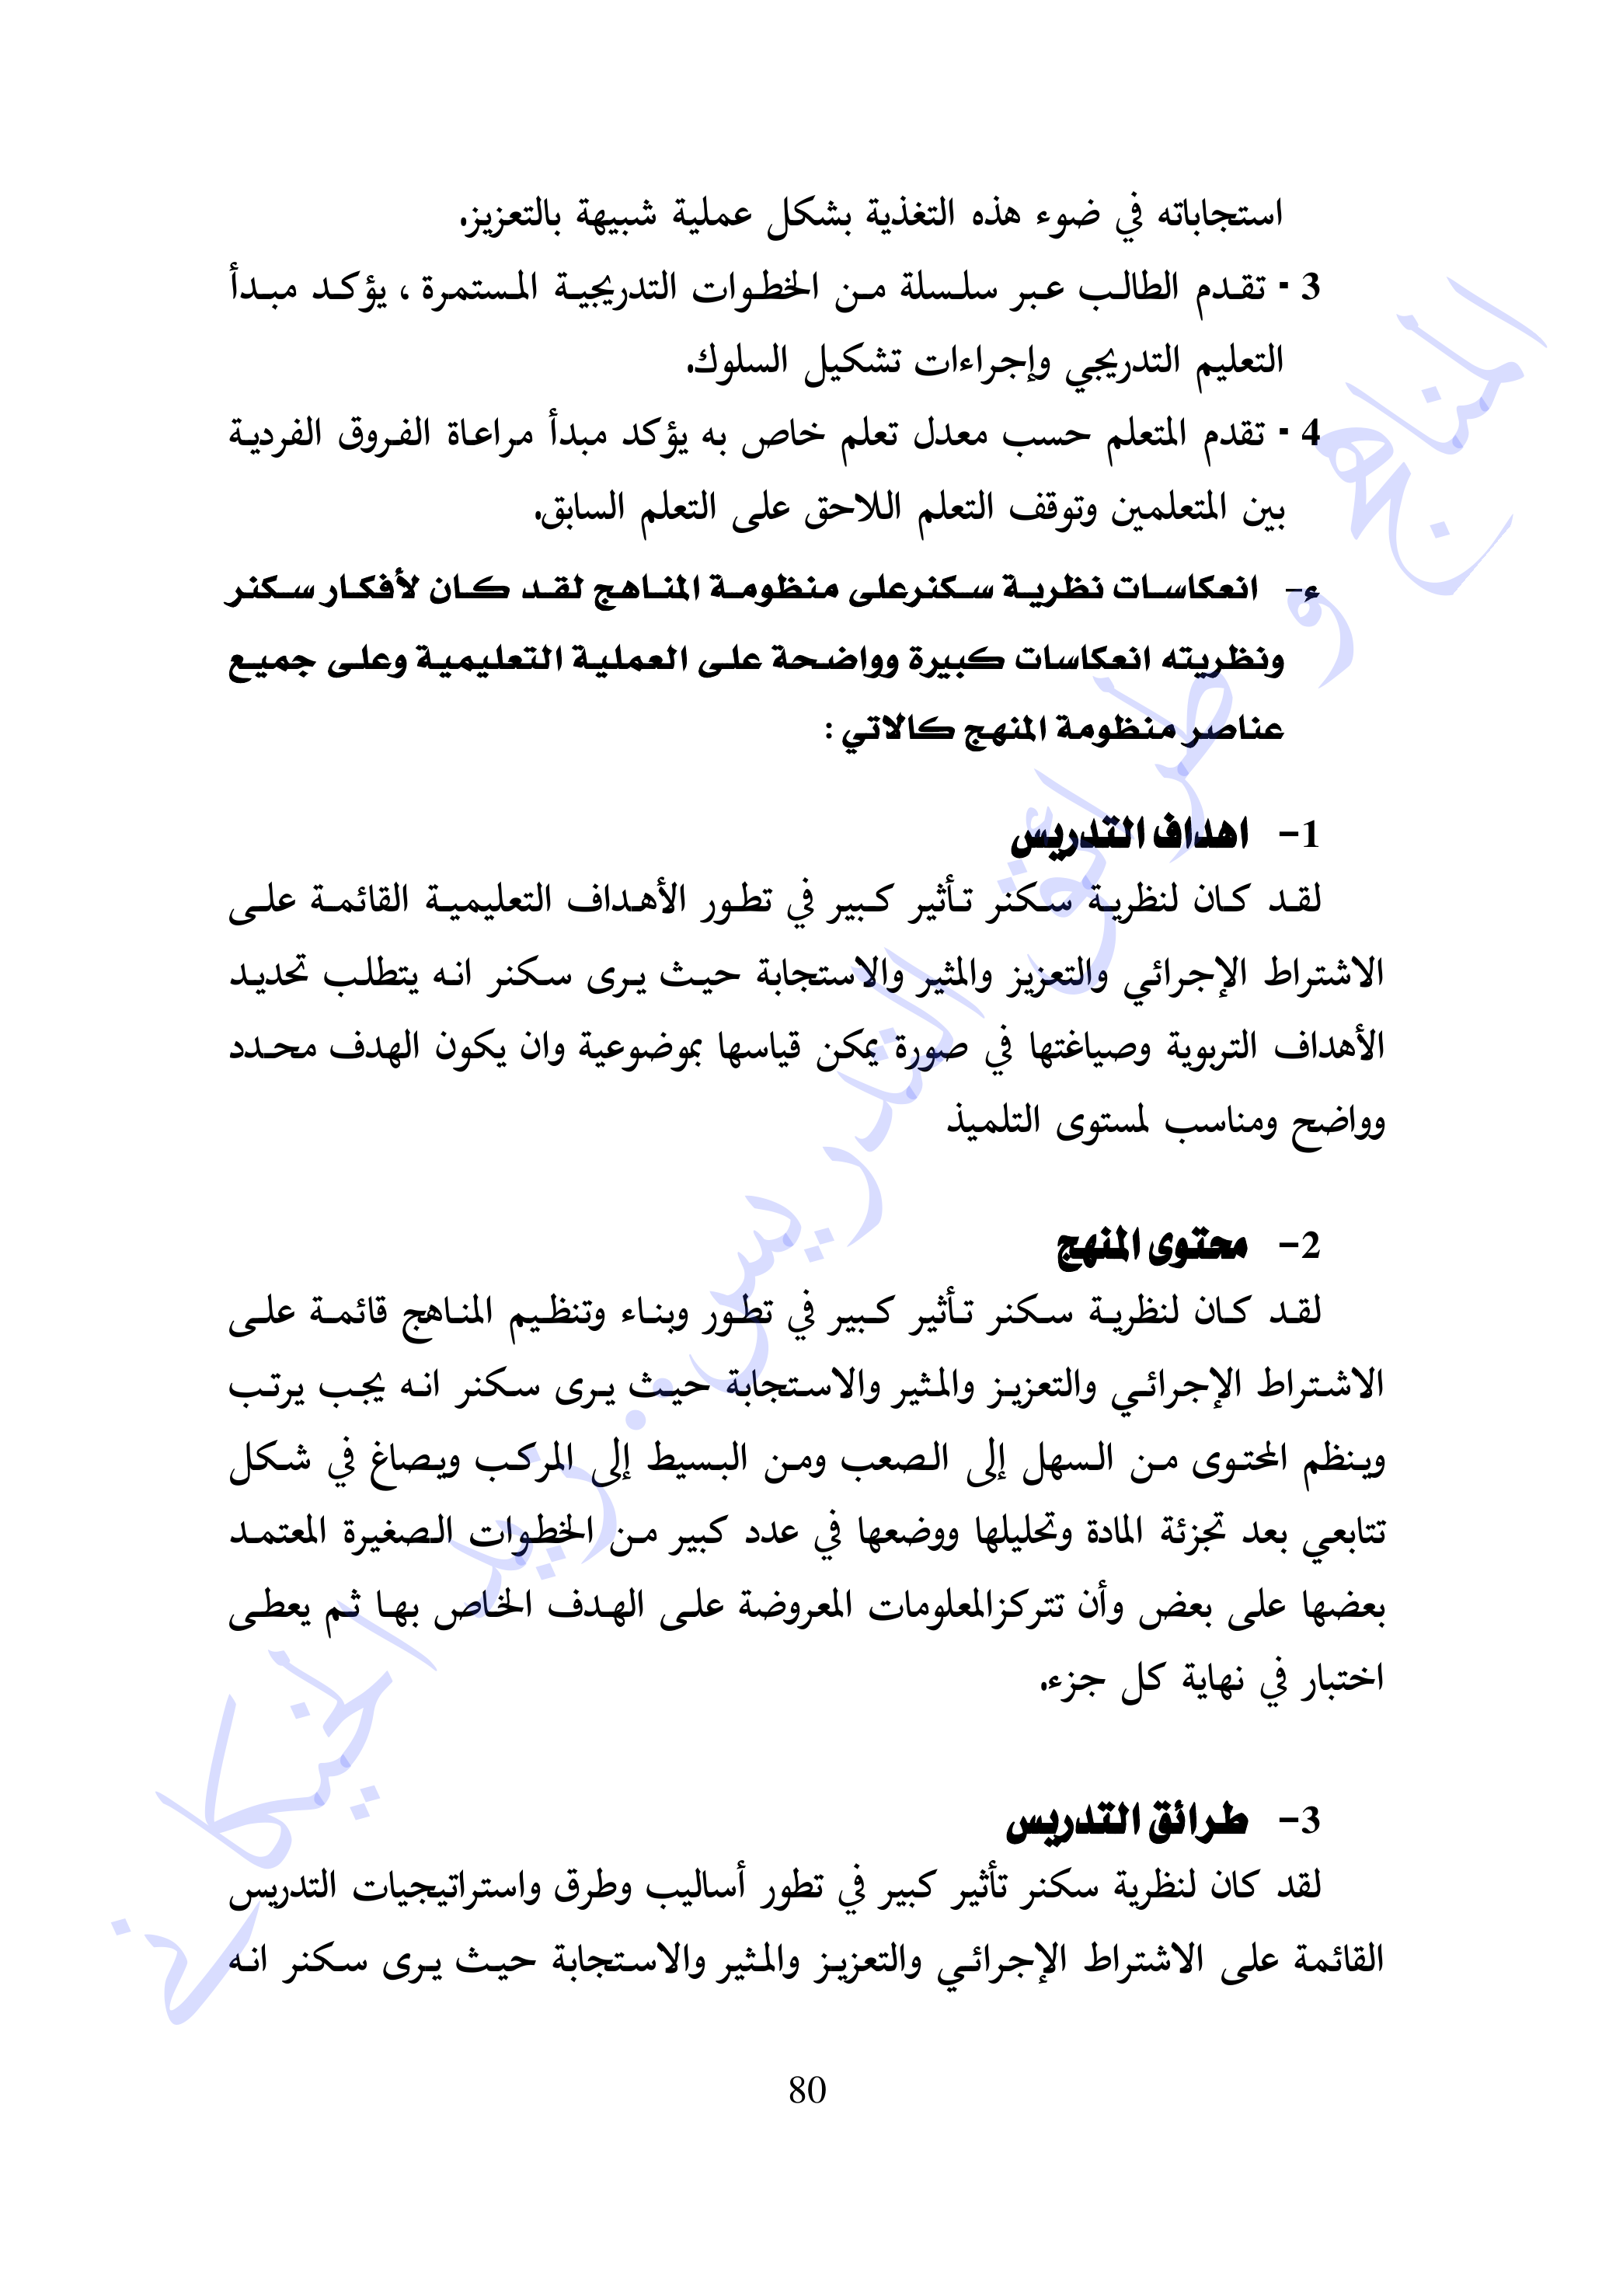 استجاباته في ضوء هذه التغذية بشكل عملية شبيهة بالتعزيز.
3 - تقدم الطالب عبر سلسلة من الخطوات التدريجية المستمرة ، يؤكد مبدأ
التعليم التدريجي وإجراءات تشكيل السلوك.
4 - تقدم المتعلم حسب معدل تعلم خاص به يؤكد مبدأ مراعاة الفروق الفردية
بين المتعلمين وتوقف التعلم اللاحق على التعلم السابق.
ء- انعكاسات نظرية سكنرعلى منظومة المناهج لقد كان لأفكار سكنر
ونظريته انعكاسات كبيرة وواضحة على العملية التعليمية وعلى جميع
عناصر منظومة المنهج كالاتي :
1- اهداف التدريس
لقد كان لنظرية سكنر تأثير كبير في تطور الأهداف التعليمية القائمة على
الاشتراط الإجرائي والتعزيز والمثير والاستجابة حيث يرى سكنر انه يتطلب تحديد
الأهداف التربوية وصياغتها في صورة يمكن قياسها بموضوعية وان يكون الهدف محدد
وواضح ومناسب لمستوى التلميذ
2- محتوى المنهج
لقد كان لنظرية سكنر تأثير كبير في تطور وبناء وتنظيم المناهج قائمة على
الاشتراط الإجرائي والتعزيز والمثير والاستجابة حيث يرى سكنر انه يجب يرتب
وينظم المحتوى من السهل إلى الصعب ومن البسيط إلى المركب ويصاغ في شكل
تتابعي بعد تجزئة المادة وتحليلها ووضعها في عدد كبير من الخطوات الصغيرة المعتمد
بعضها على بعض وأن تتركزالمعلومات المعروضة على الهدف الخاص بها ثم يعطى
اختبار في نهاية كل جزء.
3- طرائق التدريس
لقد كان لنظرية سكنر تأثير كبير في تطور أساليب وطرق واستراتيجيات التدريس
القائمة على الاشتراط الإجرائي والتعزيز والمثير والاستجابة حيث يرى سكنر انه
80
المناهج و طرائق التدريس.